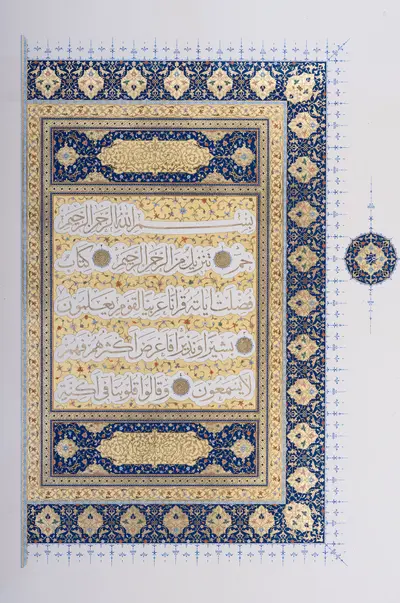 بسم الله الرحمن الرحيم
حم تنزيل من الرحمن الرحيم كتاب
فصلت اياته قرآنا عربيا لقوم يعلمون
بشيرا ونذيرا فاعرض اكثرهم فهم
لا يسمعون وقالوا قلوبنا في اكنة